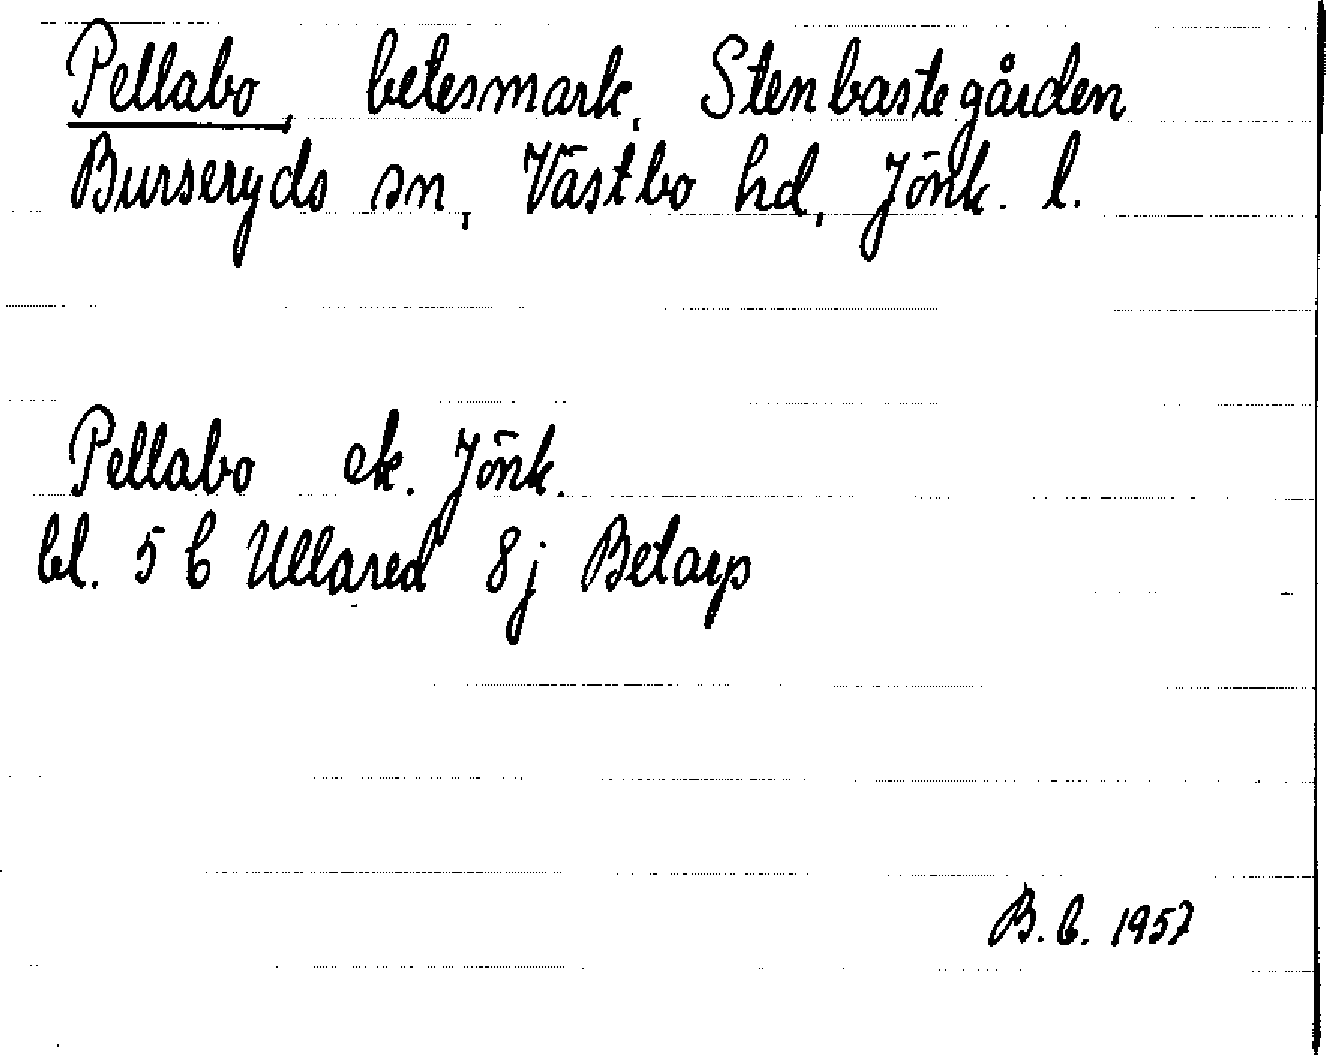 Pellabo, betesmark, Stenbastegården
Burseryds sn, Västbo hd, Jönk. l.
Pellabo ek. Jönk.
bl. 5 C Ullared 8j Betarp
B.C. 1957